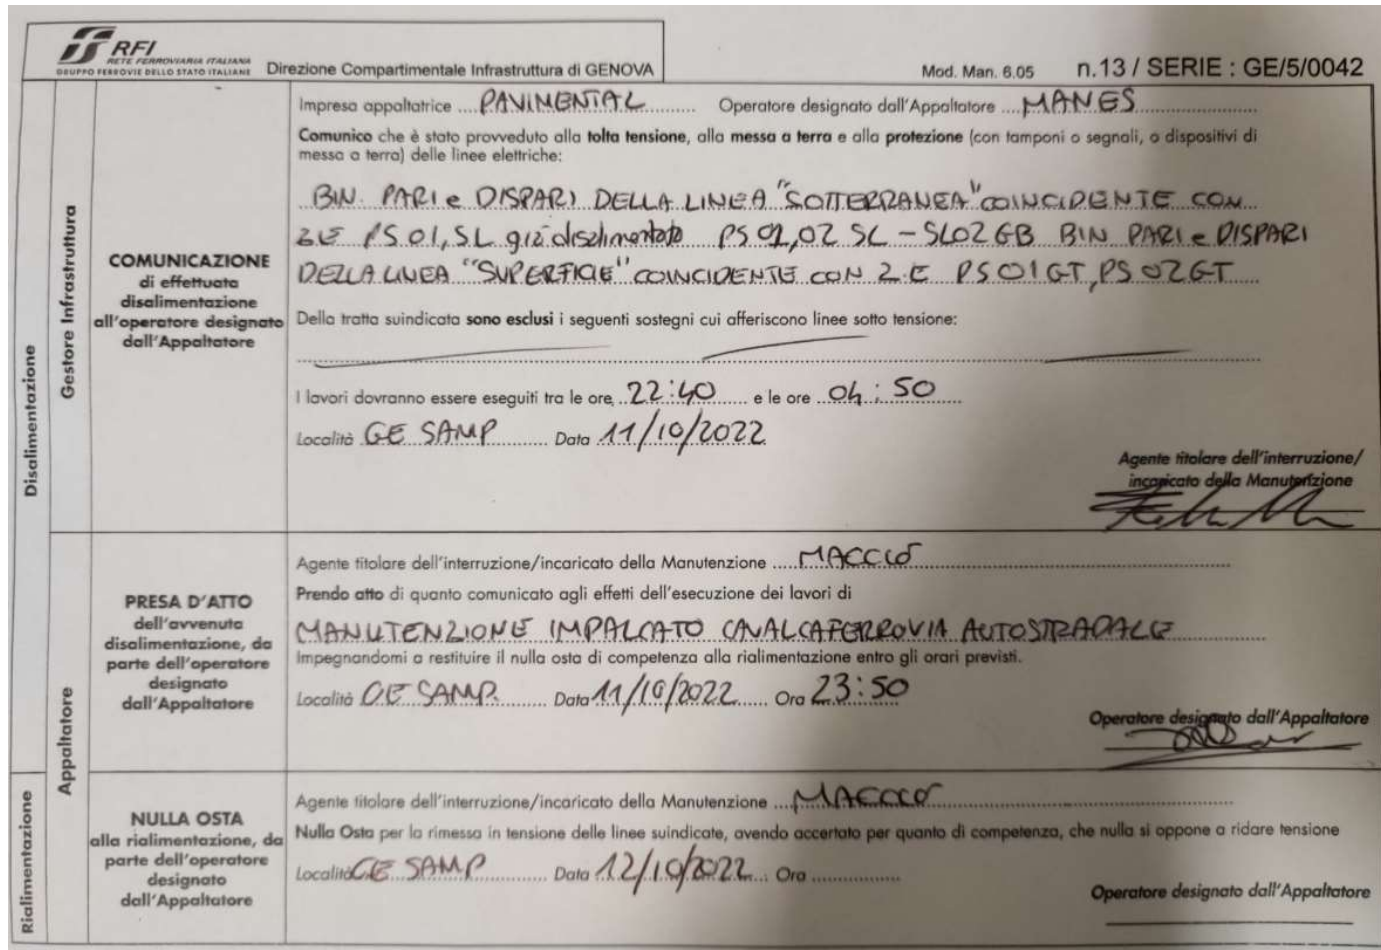 RFI
RETE FERROVIARIA ITALIANA
GRUPPO FERROVIE DELLO STATO ITALIANE
Direzione Compartimentale Infrastruttura di GENOVA
Mod. Man. 6.05 n.13 / SERIE : GE/5/0042
Disalimentazione
Gestore Infrastruttura
COMUNICAZIONE
di effettuata
disalimentazione
all'operatore designato
dall'Appaltatore
Impresa appaltatrice .... PAVIMENTAL ........ Operatore designato dall'Appaltatore .... MANES
Comunico che è stato provveduto alla tolta tensione, alla messa a terra e alla protezione (con tamponi o segnali, o dispositivi di
messa a terra) delle linee elettriche:
BIN. PARI e DISPARI DELLA LINEA "SOTTERRANEA" COINCIDENTE CON
ZE PS01,SL già disalimentato PS 01,02 SL - SL02 GB BIN PARI e DISPARI
DELLA LINEA "SUPERFICIE" COINCIDENTE CON Z.E PS01GT, PS02GT
Della tratta suindicata sono esclusi i seguenti sostegni cui afferiscono linee sotto tensione:
I lavori dovranno essere eseguiti tra le ore 22:40 e le ore 04:50
Località GE SAMP Data 11/10/2022
Agente titolare dell'interruzione/
incaricato della Manutenzione
Appaltatore
PRESA D'ATTO
dell'avvenuta
disalimentazione, da
parte dell'operatore
designato
dall'Appaltatore
Agente titolare dell'interruzione/incaricato della Manutenzione .... MACCIÒ
Prendo atto di quanto comunicato agli effetti dell'esecuzione dei lavori di
MANUTENZIONE IMPALCATO CAVALCAFERROVIA AUTOSTRADALE
Impegnandomi a restituire il nulla osta di competenza alla rialimentazione entro gli orari previsti.
Località GE SAMP. Data 11/10/2022 Ora 23:50
Operatore designato dall'Appaltatore
Rialimentazione
NULLA OSTA
alla rialimentazione, da
parte dell'operatore
designato
dall'Appaltatore
Agente titolare dell'interruzione/incaricato della Manutenzione .... MACCIÒ
Nulla Osta per la rimessa in tensione delle linee suindicate, avendo accertato per quanto di competenza, che nulla si oppone a ridare tensione
Località GE SAMP Data 12/10/2022 Ora
Operatore designato dall'Appaltatore